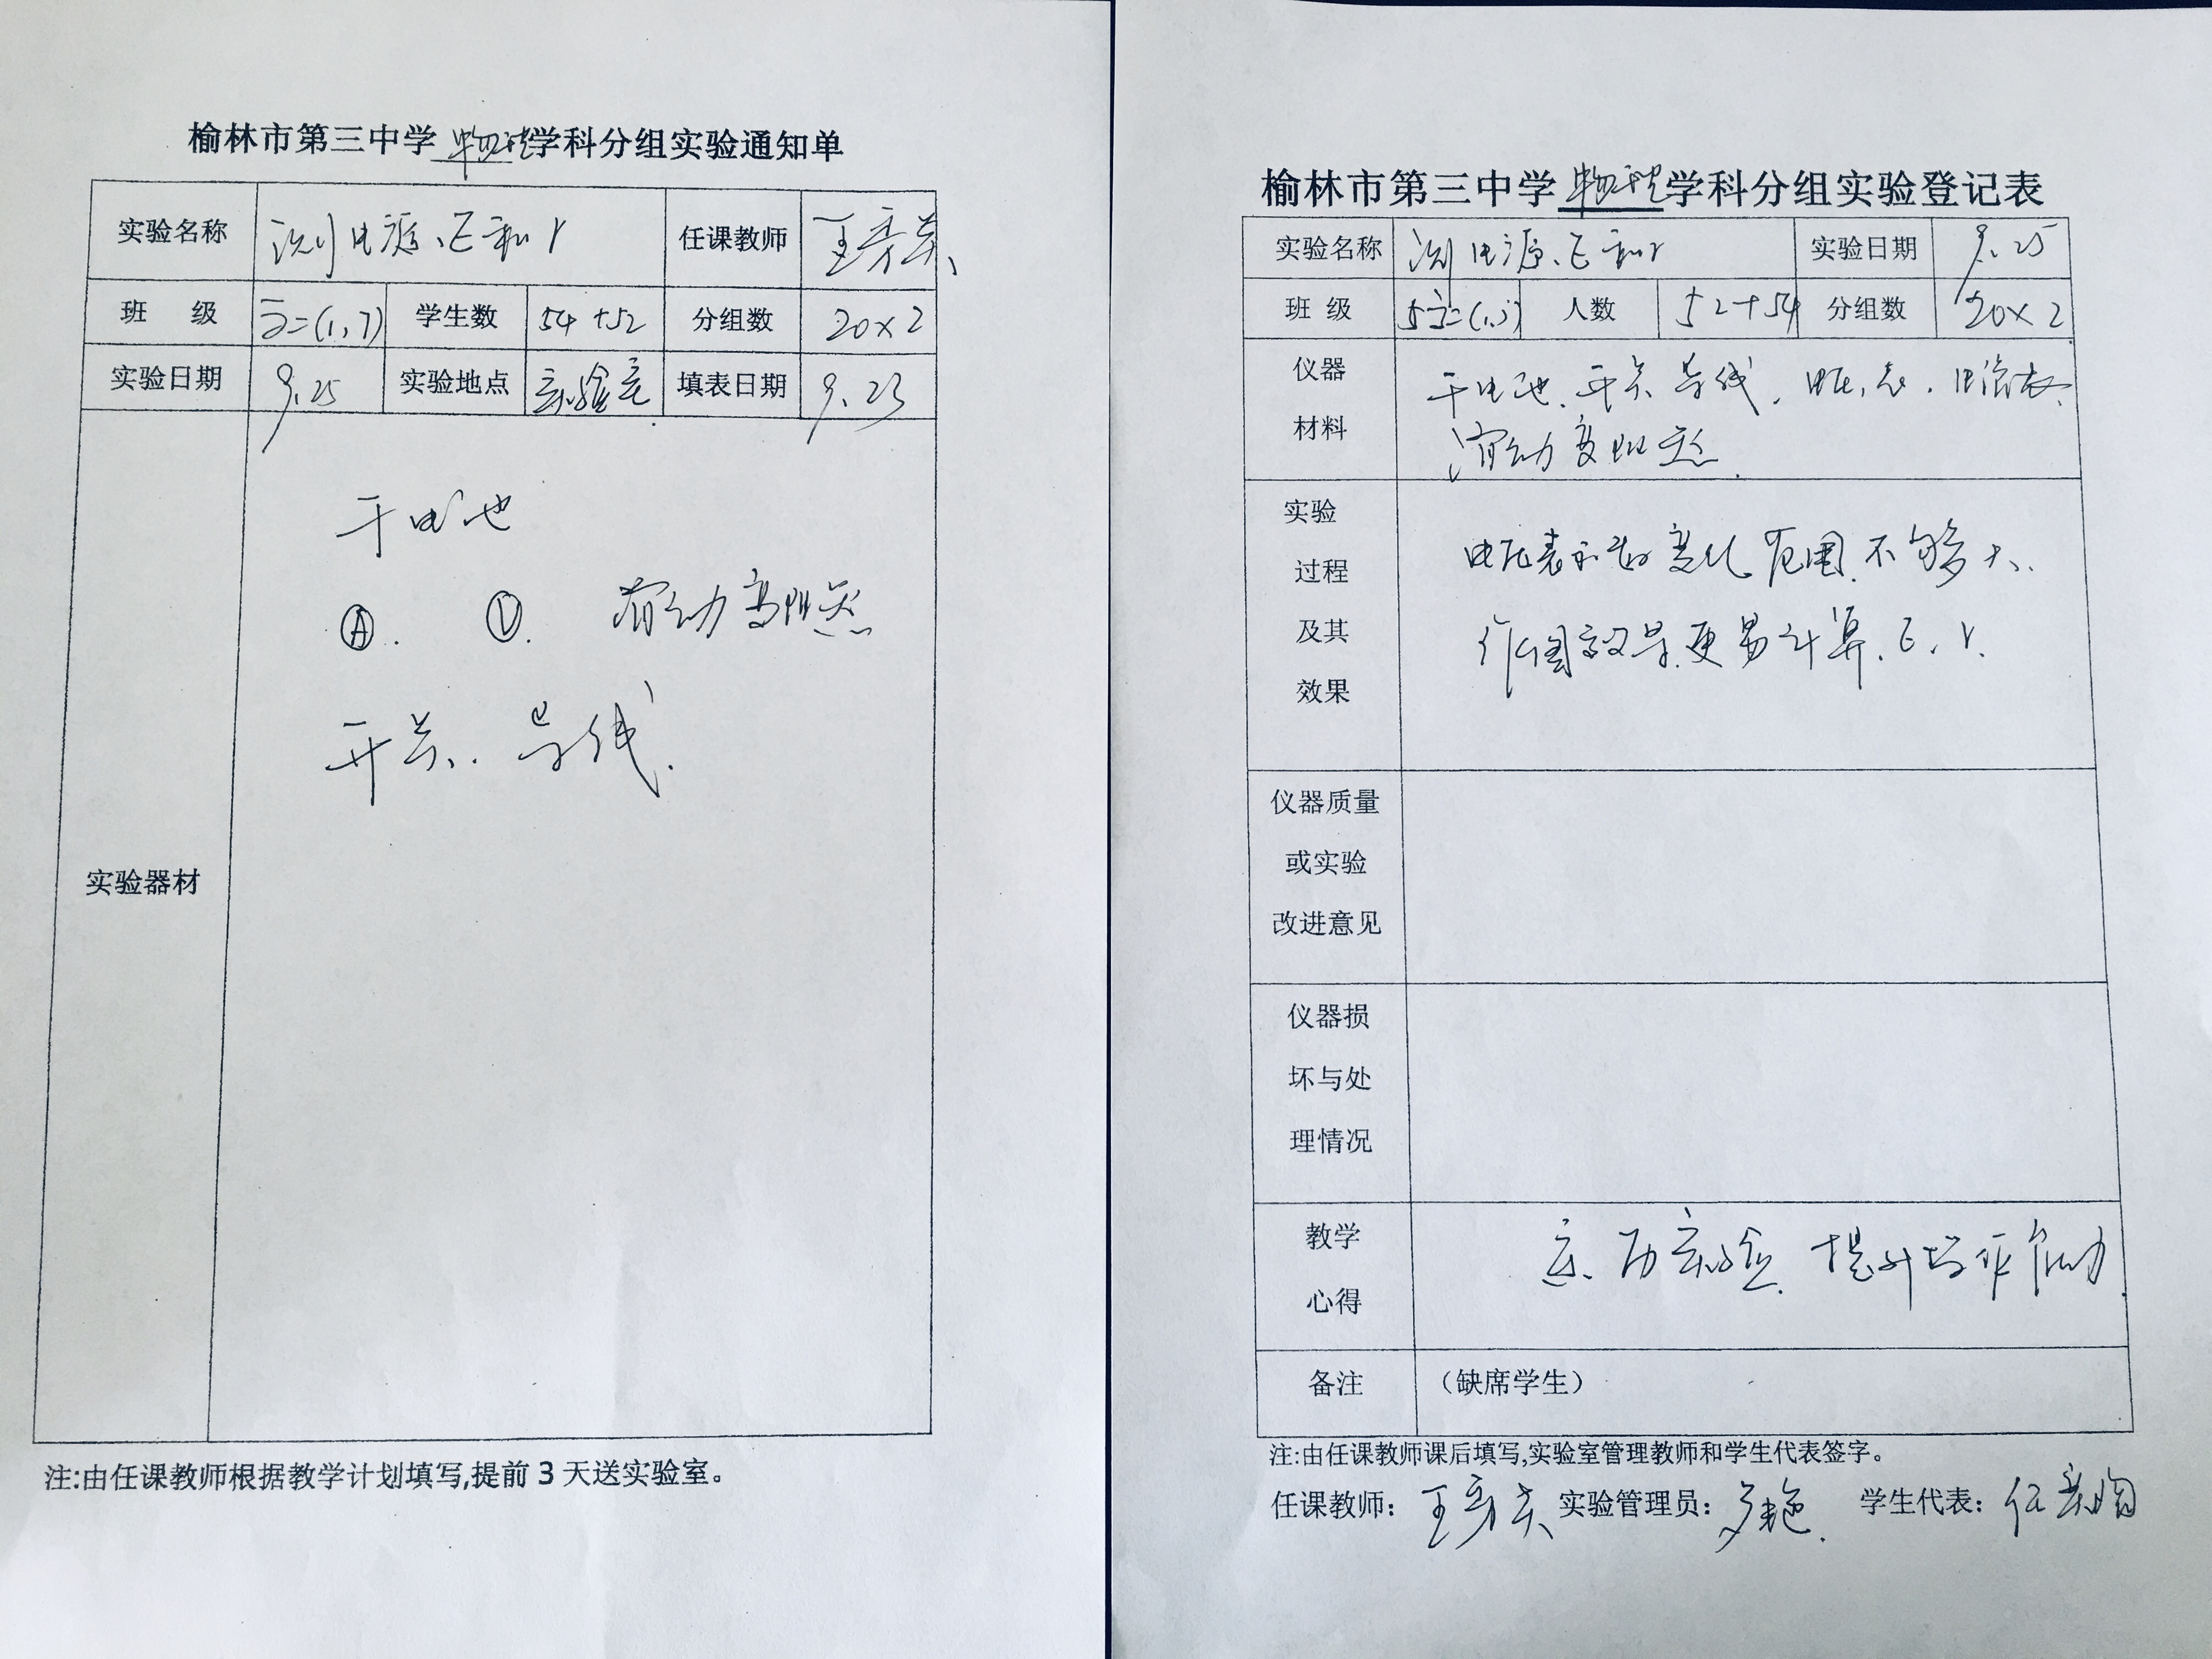 榆林市第三中学物理学科分组实验通知单
实验名称 测电源E和r 任课教师
班 级 高二(1,7) 学生数 54+52 分组数 20×2
实验日期 9.25 实验地点 实验室 填表日期 9.23
实验器材
干电池
Ⓐ. Ⓥ. 滑动变阻器
开关. 导线.
注:由任课教师根据教学计划填写,提前 3 天送实验室。
榆林市第三中学物理学科分组实验登记表
实验名称 测电源E和r 实验日期 9.25
班 级 人数 52+54 分组数 20×2
仪器
材料
干电池.开关.导线.电压表.电流表.
滑动变阻器.
实验
过程
及其
效果
电压表示数变化范围不够大.
作图效果更易计算.E.r.
仪器质量
或实验
改进意见
仪器损
坏与处
理情况
教学
心得
实验.提升 能力
备注 (缺席学生)
注:由任课教师课后填写,实验室管理教师和学生代表签字。
任课教师: 实验管理员: 学生代表: